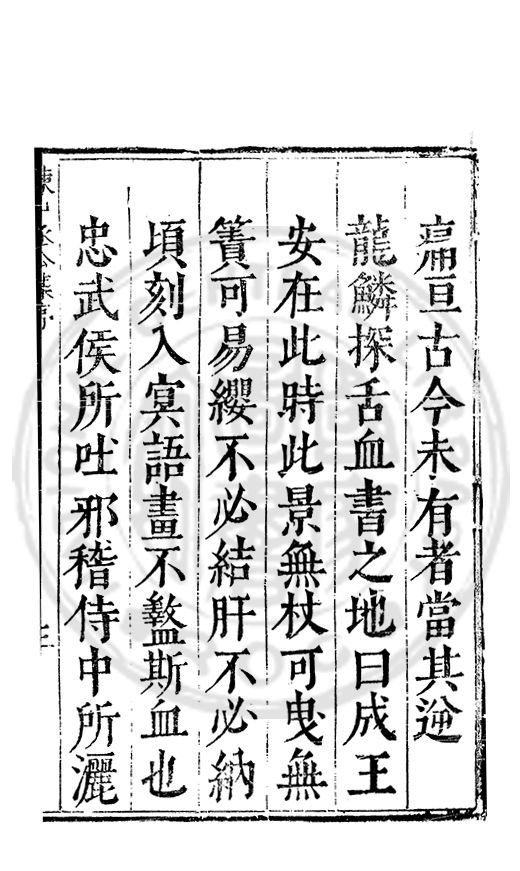 痏亘古今未有者當其逆
龍鱗探舌血書之地曰成王
安在此時此景無杖可曳無
簀可易纓不必結肝不必納
頃刻入冥語畫不盭斯血也
忠武侯所吐邪稽侍中所灑